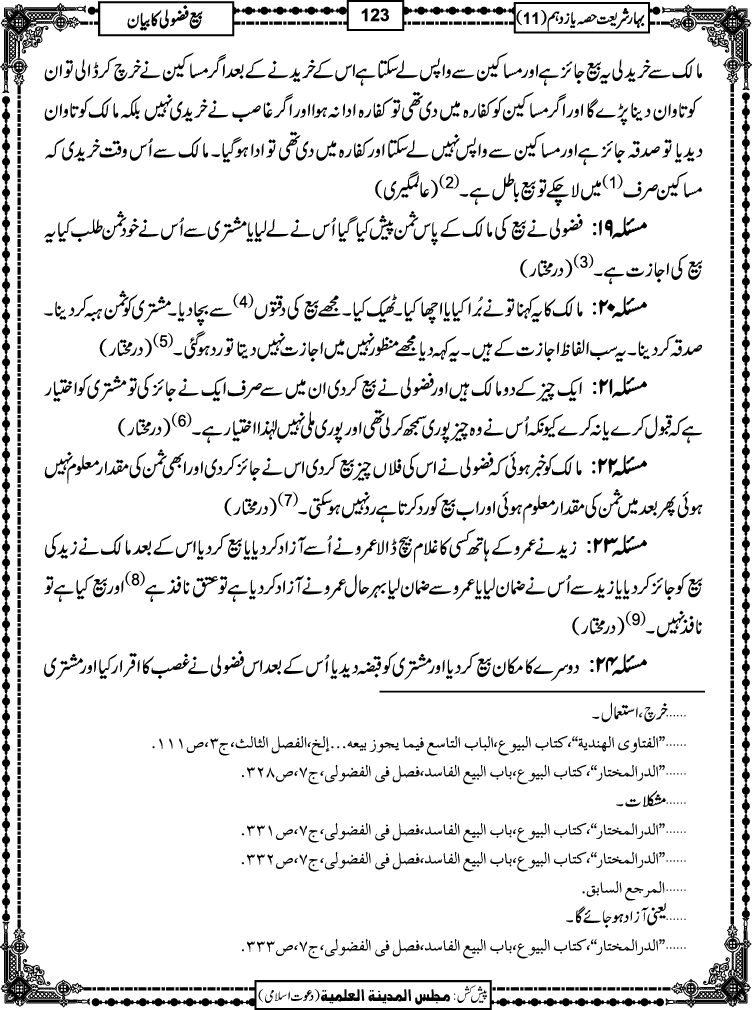 بہارِ شریعت حصہ یازدہم (11)
123
بیع فضولی کا بیان
مالک سے خرید لی یہ بیع جائز ہے اور مساکین سے واپس لے سکتا ہے اس کے خریدنے کے بعد اگر مساکین نے خرچ کر ڈالی تو ان
کو تاوان دینا پڑے گا اور اگر مساکین کو کفارہ میں دی تھی تو کفارہ ادا نہ ہوا اور اگر غاصب نے خریدی نہیں بلکہ مالک کو تاوان
دیدیا تو صدقہ جائز ہے اور مساکین سے واپس نہیں لے سکتا اور کفارہ میں دی تھی تو ادا ہوگیا۔ مالک سے اُس وقت خریدی کہ
مساکین صرف (1) میں لاچکے تو بیع باطل ہے۔ (2) (عالمگیری)
مسئلہ ۱۹: فضولی نے بیع کی مالک کے پاس ثمن پیش کیا گیا اُس نے لے لیا یا مشتری سے اُس نے خود ثمن طلب کیا یہ
بیع کی اجازت ہے۔ (3) (درمختار)
مسئلہ ۲۰: مالک کا یہ کہنا تو نے بُرا کیا یا اچھا کیا۔ ٹھیک کیا۔ مجھے بیع کی دقتوں (4) سے بچا دیا۔ مشتری کو ثمن ہبہ کر دینا۔
صدقہ کر دینا۔ یہ سب الفاظ اجازت کے ہیں۔ یہ کہہ دیا مجھے منظور نہیں میں اجازت نہیں دیتا تو رد ہوگئی۔ (5) (درمختار)
مسئلہ ۲۱: ایک چیز کے دو مالک ہیں اور فضولی نے بیع کر دی ان میں سے صرف ایک نے جائز کی تو مشتری کو اختیار
ہے کہ قبول کرے یا نہ کرے کیونکہ اُس نے وہ چیز پوری سمجھ کر لی تھی اور پوری ملی نہیں لہٰذا اختیار ہے۔ (6) (درمختار)
مسئلہ ۲۲: مالک کو خبر ہوئی کہ فضولی نے اس کی فلاں چیز بیع کر دی اس نے جائز کر دی اور ابھی ثمن کی مقدار معلوم نہیں
ہوئی پھر بعد میں ثمن کی مقدار معلوم ہوئی اور اب بیع کو رد کرتا ہے رد نہیں ہوسکتی۔ (7) (درمختار)
مسئلہ ۲۳: زید نے عمرو کے ہاتھ کسی کا غلام بیچ ڈالا عمرو نے اُسے آزاد کر دیا یا بیع کر دیا اس کے بعد مالک نے زید کی
بیع کو جائز کر دیا یا زید سے اُس نے ضمان لیا یا عمرو سے ضمان لیا بہر حال عمرو نے آزاد کر دیا ہے تو عتق نافذ ہے (8) اور بیع کیا ہے تو
نافذ نہیں۔ (9) (درمختار)
مسئلہ ۲۴: دوسرے کا مکان بیع کر دیا اور مشتری کو قبضہ دیدیا اُس کے بعد اس فضولی نے غصب کا اقرار کیا اور مشتری
......خرچ، استعمال۔
......"الفتاوی الهندية"، کتاب البیوع، الباب التاسع فیما یجوز بیعه...إلخ، الفصل الثالث، ج۳، ص۱۱۱.
......"الدرالمختار"، کتاب البیوع، باب البیع الفاسد، فصل فی الفضولی، ج۷، ص۳۲۸.
......مشکلات۔
......"الدرالمختار"، کتاب البیوع، باب البیع الفاسد، فصل فی الفضولی، ج۷، ص۳۳۱.
......"الدرالمختار"، کتاب البیوع، باب البیع الفاسد، فصل فی الفضولی، ج۷، ص۳۳۲.
......المرجع السابق.
......یعنی آزاد ہو جائے گا۔
......"الدرالمختار"، کتاب البیوع، باب البیع الفاسد، فصل فی الفضولی، ج۷، ص۳۳۳.
پیش کش: مجلس المدینة العلمیة (دعوت اسلامی)